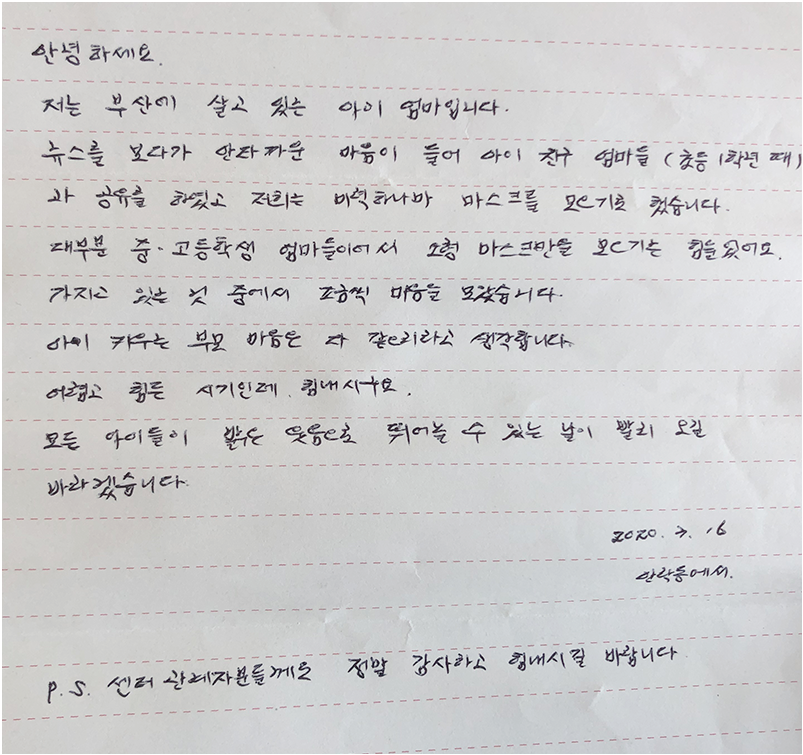 안녕하세요.
저는 부산에 살고 있는 아이 엄마입니다.
뉴스를 보다가 안타까운 마음이 들어 아이 친구 엄마들 (초등 1학년 때)
과 공유를 하였고 저희는 미력하나마 마스크를 모으기로 했습니다.
대부분 중·고등학생 엄마들이어서 소형 마스크만을 모으기는 힘들었어요.
가지고 있는 것 중에서 조금씩 마음을 모았습니다.
아이 키우는 부모 마음은 다 같으리라고 생각합니다.
어렵고 힘든 시기인데, 힘내시구요.
모든 아이들이 밝은 웃음으로 뛰어놀 수 있는 날이 빨리 오길
바라겠습니다.
2020. 3. 16
안락동에서.
P.S. 센터 관계자분들께도 정말 감사하고 힘내시길 바랍니다